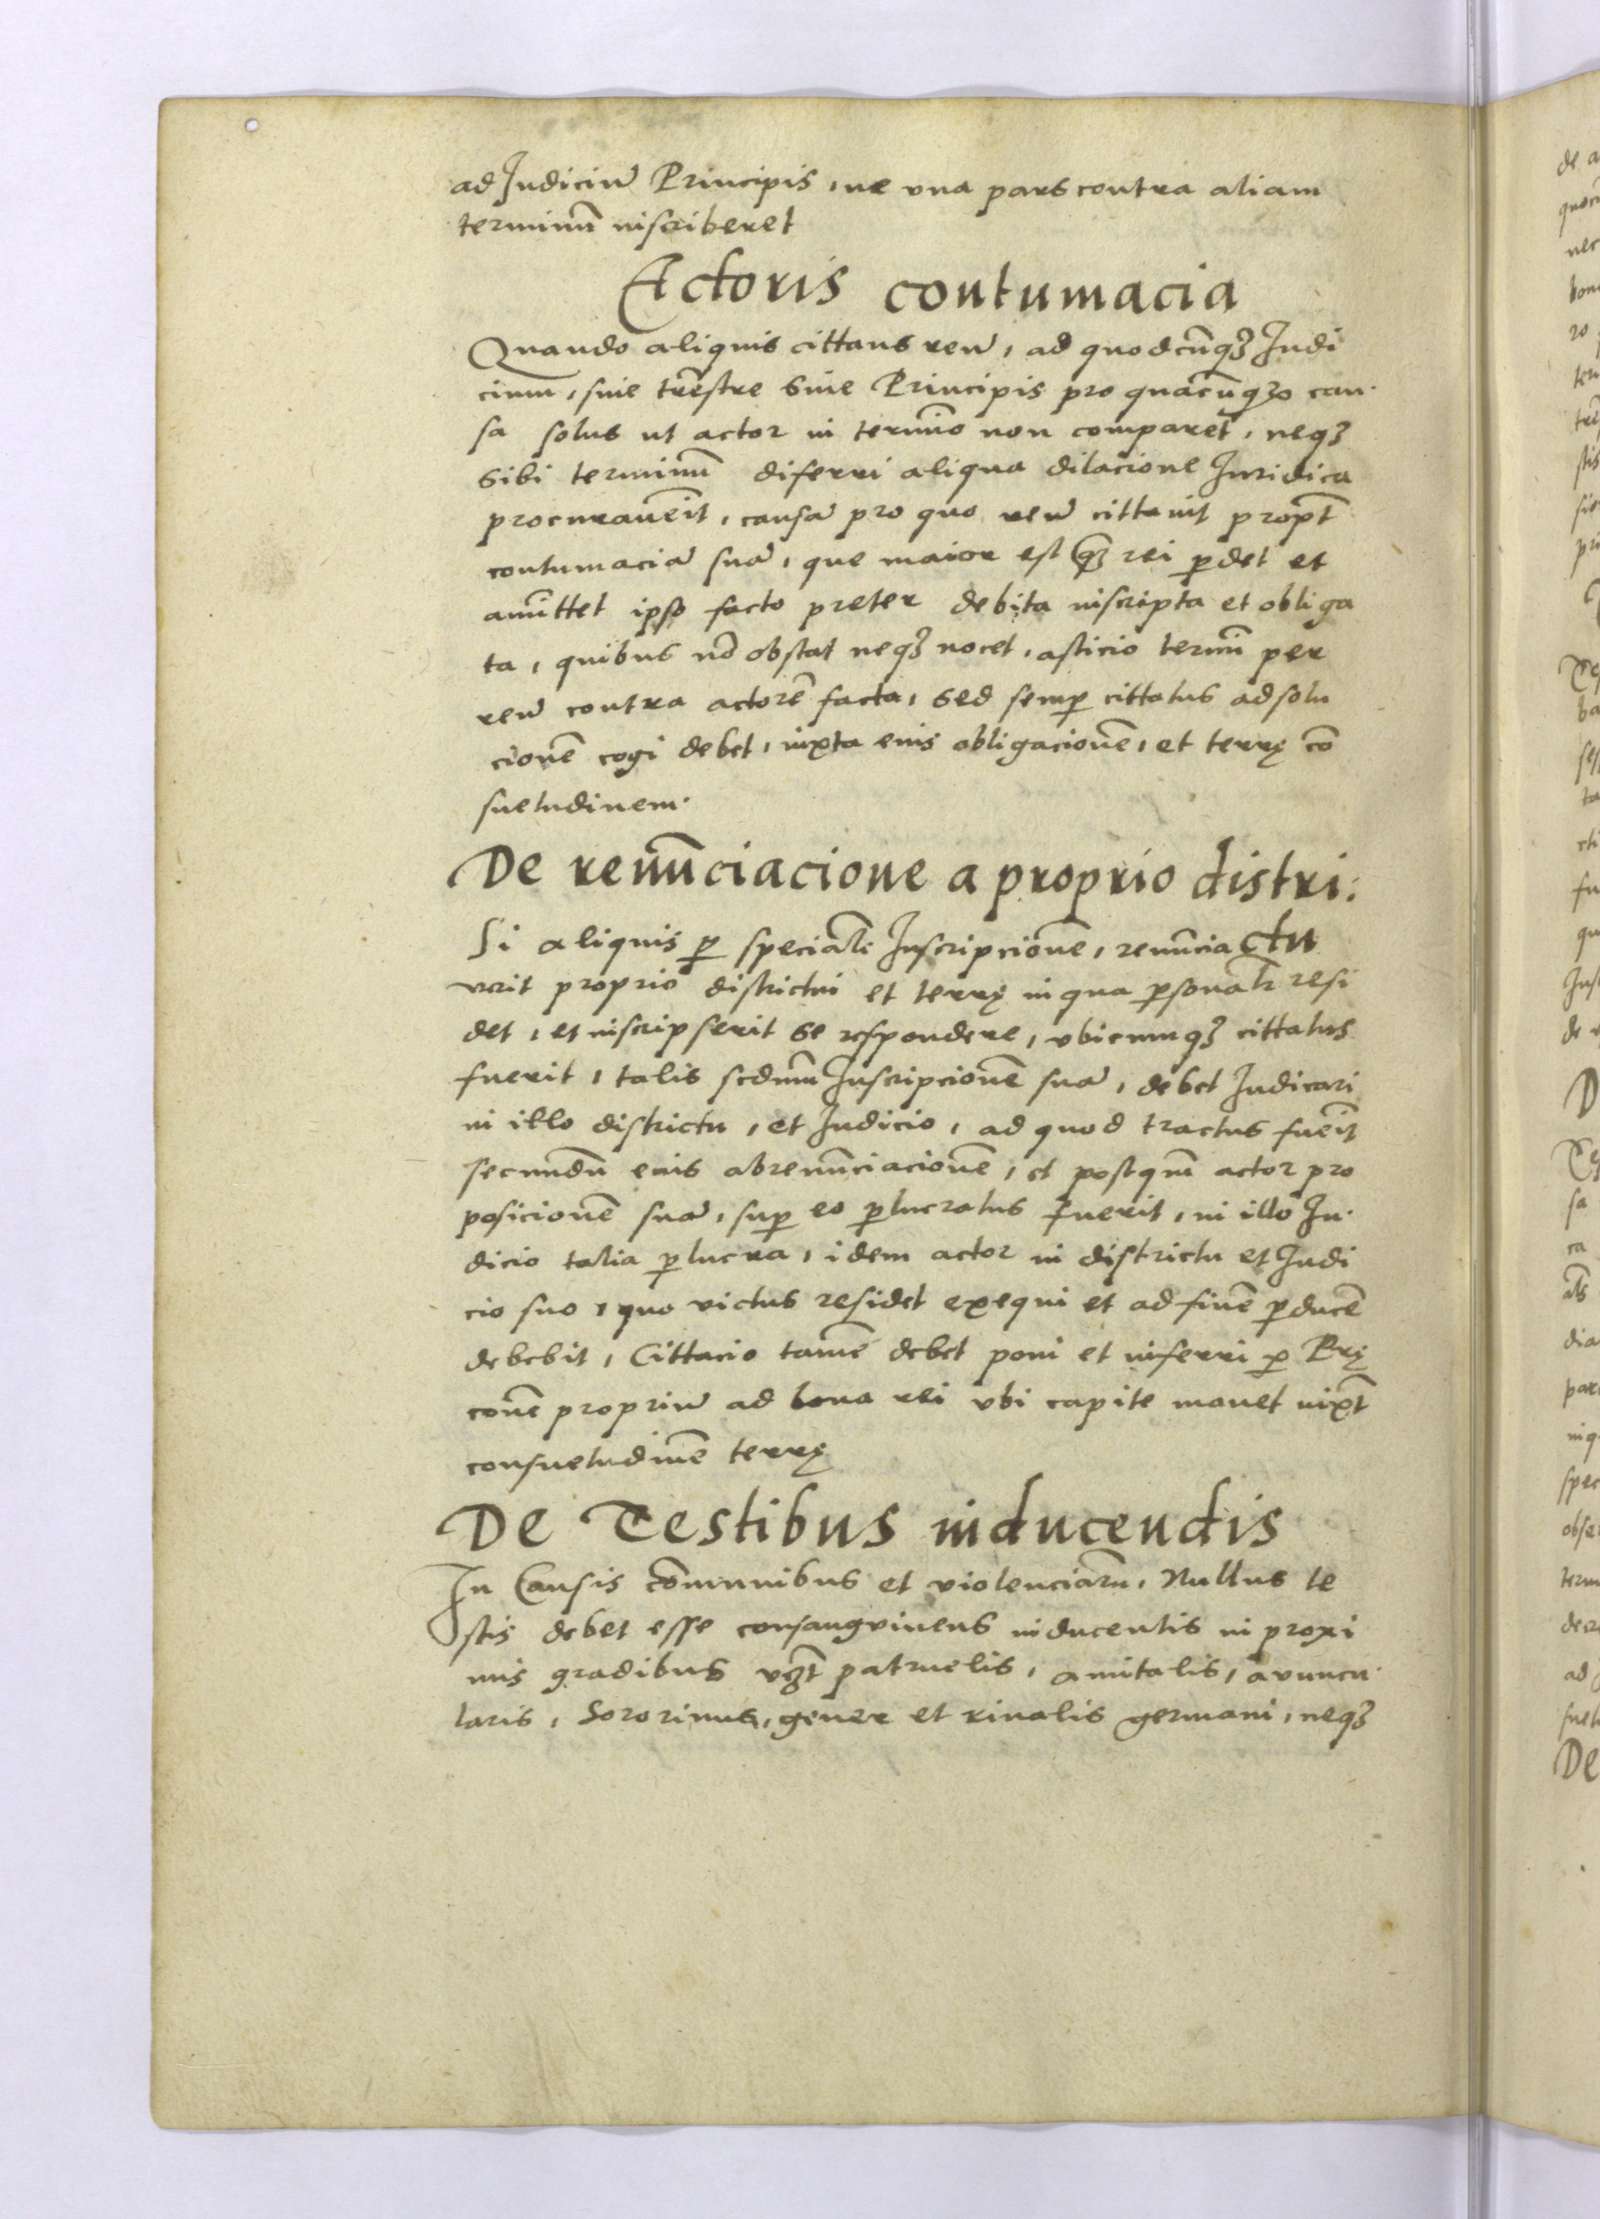 ad Judiciū Principis, ne vna pars contra aliam
terminū inscriberet
Actoris contumacia
Quando aliquis cittans reū, ad quodcūqꝫ Judi
cium, siue trēstre siue Principis pro quacūqꝫ cau-
sa solus ut actor in termīo non comparet, neqꝫ
sibi terminū diferri aliqua dilacione Juridica
procurauerit, causā pro quo reū cittauit propt̄
contumaciā suā, que maior est qꝫ rei ꝑdet et
amittet ipso facto preter debita inscripta et obliga
ta, quibus nō obstat neqꝫ nocet, asticio termī per
reū contra actorē facta, sed semꝑ cittatus ad solu
cionē cogi debet, iuxta eius obligacionē, et terrę cō
suetudinem.
De renūciacione a proprio distri:
Si aliquis ꝑ specialē Inscripcionē, renūcia ctu
verit proprio districtui et terrę in qua ꝑsonalr resi
det, et inscripserit se respondere, vbicumqꝫ cittatus
fuerit, talis scdmū Inscripcionē suā, debet Judicari
in illo districtu, et Judicio, ad quod tractus fuerit
secundū eius abrenūciacionē, et postqm̄ actor pro
posicionē suā, suꝑ eo ꝑlucratus fuerit, in illo Ju-
dicio talia ꝑlucra, idem actor in districtu et Judi
cio suo, quo victus residet exequi et ad finē ꝑducē
debebit, Cittacio tamē debet poni et inferri ꝑ Prę
conē propriū ad bona rei vbi capite manet iuxt̄
consuetudinē terrę
De Testibus inducendis
In Causis cōmunibus et violenciarū, Nullus te
stis debet esse consangvineus inducentis in proxi
mis gradibus vꝫt patruelis, amitalis, avuncu-
laris, Sororinus, gener et rivalis germani, neqꝫ